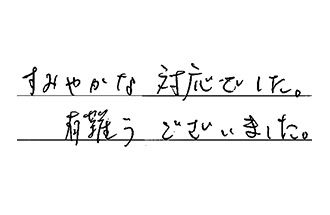 すみやかな 対応でした。
有難う ございました。